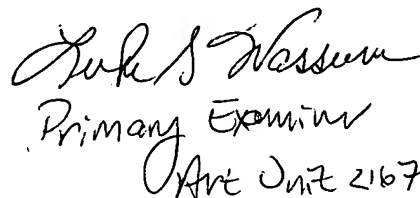 Luke S Wassum
Primary Examiner
Art Unit 2167